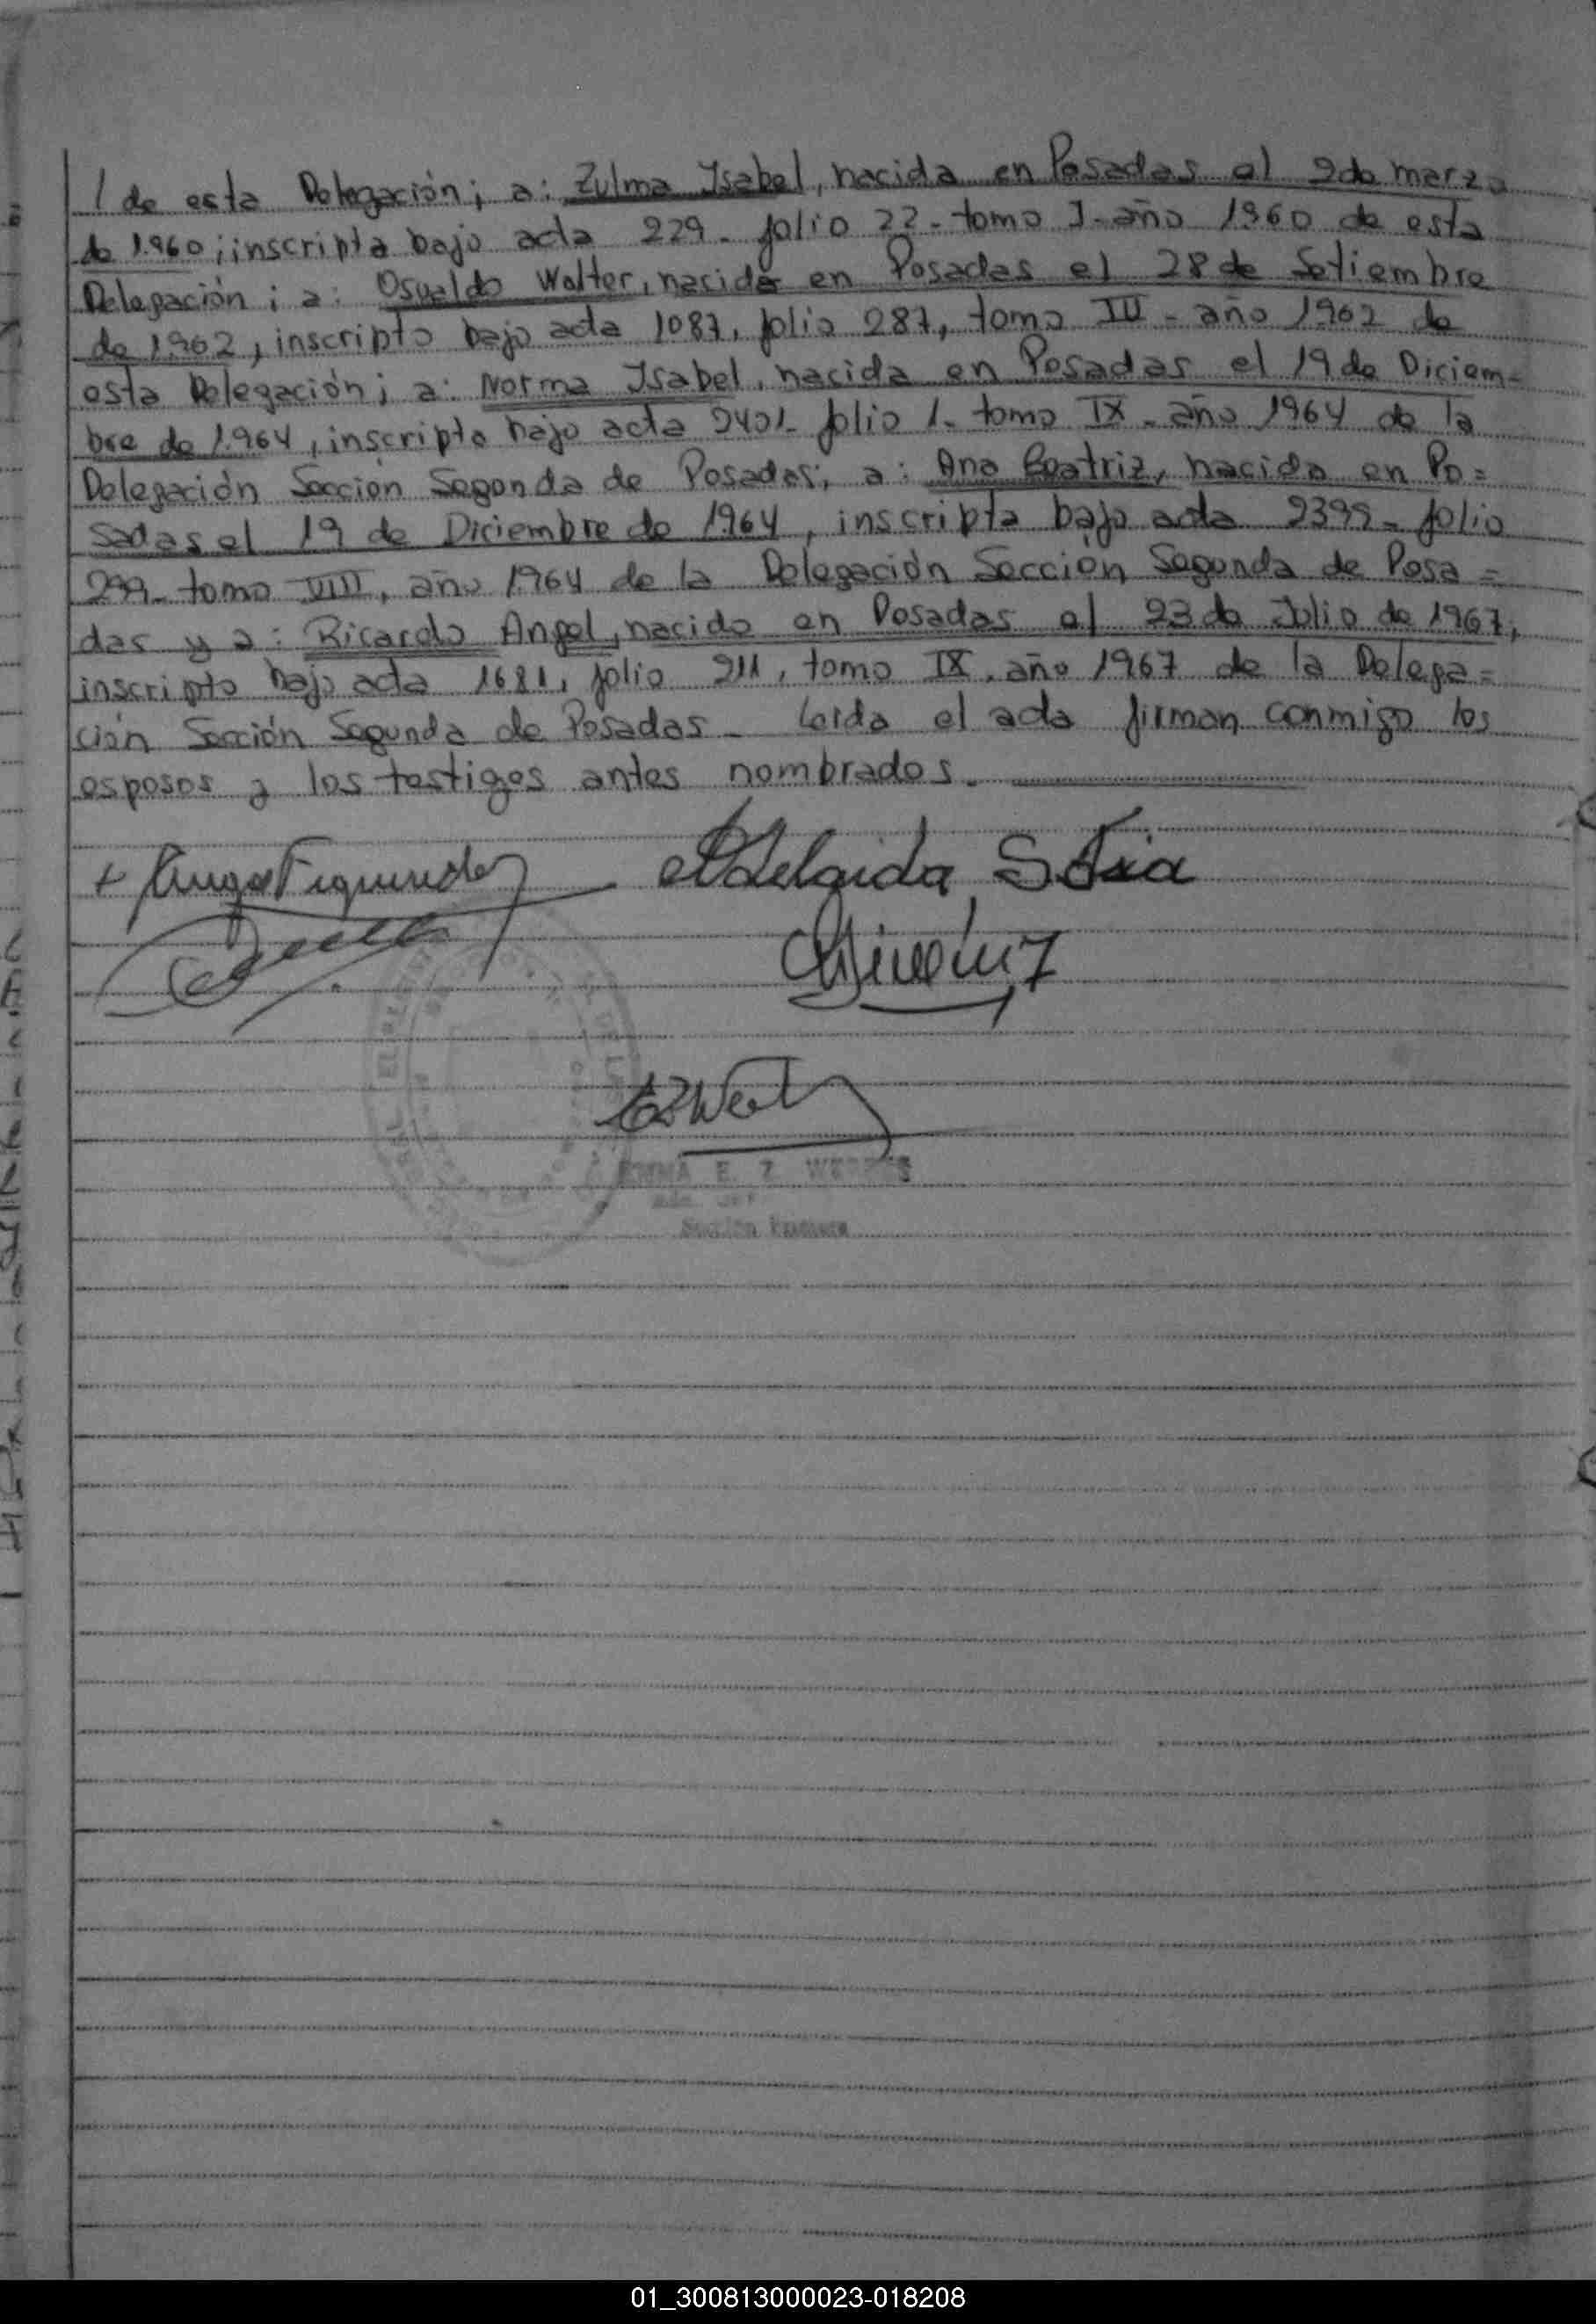 / de esta Delegación; a: Zulma Isabel, nacida en Posadas el 2 de marzo
de 1960; inscripta bajo acta 229- folio 22- tomo I- año 1960 de esta
Delegación; a: Osvaldo Walter, nacido en Posadas el 28 de Setiembre
de 1962, inscripto bajo acta 1087, folio 287, tomo IV - año 1962 de
esta Delegación; a: Norma Isabel, nacida en Posadas el 19 de Diciem-
bre de 1964, inscripta bajo acta 2401- folio 1- tomo IX - año 1964 de la
Delegación Sección Segunda de Posadas; a: Ana Beatriz, nacida en Po=
sadas el 19 de Diciembre de 1964, inscripta bajo acta 2399- folio
299- tomo VIII, año 1964 de la Delegación Sección Segunda de Posa=
das y a: Ricardo Angel, nacido en Posadas el 23 de Julio de 1967,
inscripto bajo acta 1681, folio 211, tomo IX, año 1967 de la Delega=
ción Sección Segunda de Posadas- Leida el acta firman conmigo los
esposos y los testigos antes nombrados.
Adelaida
EMMA E. Z.
Sección Primera
01_300813000023-018208